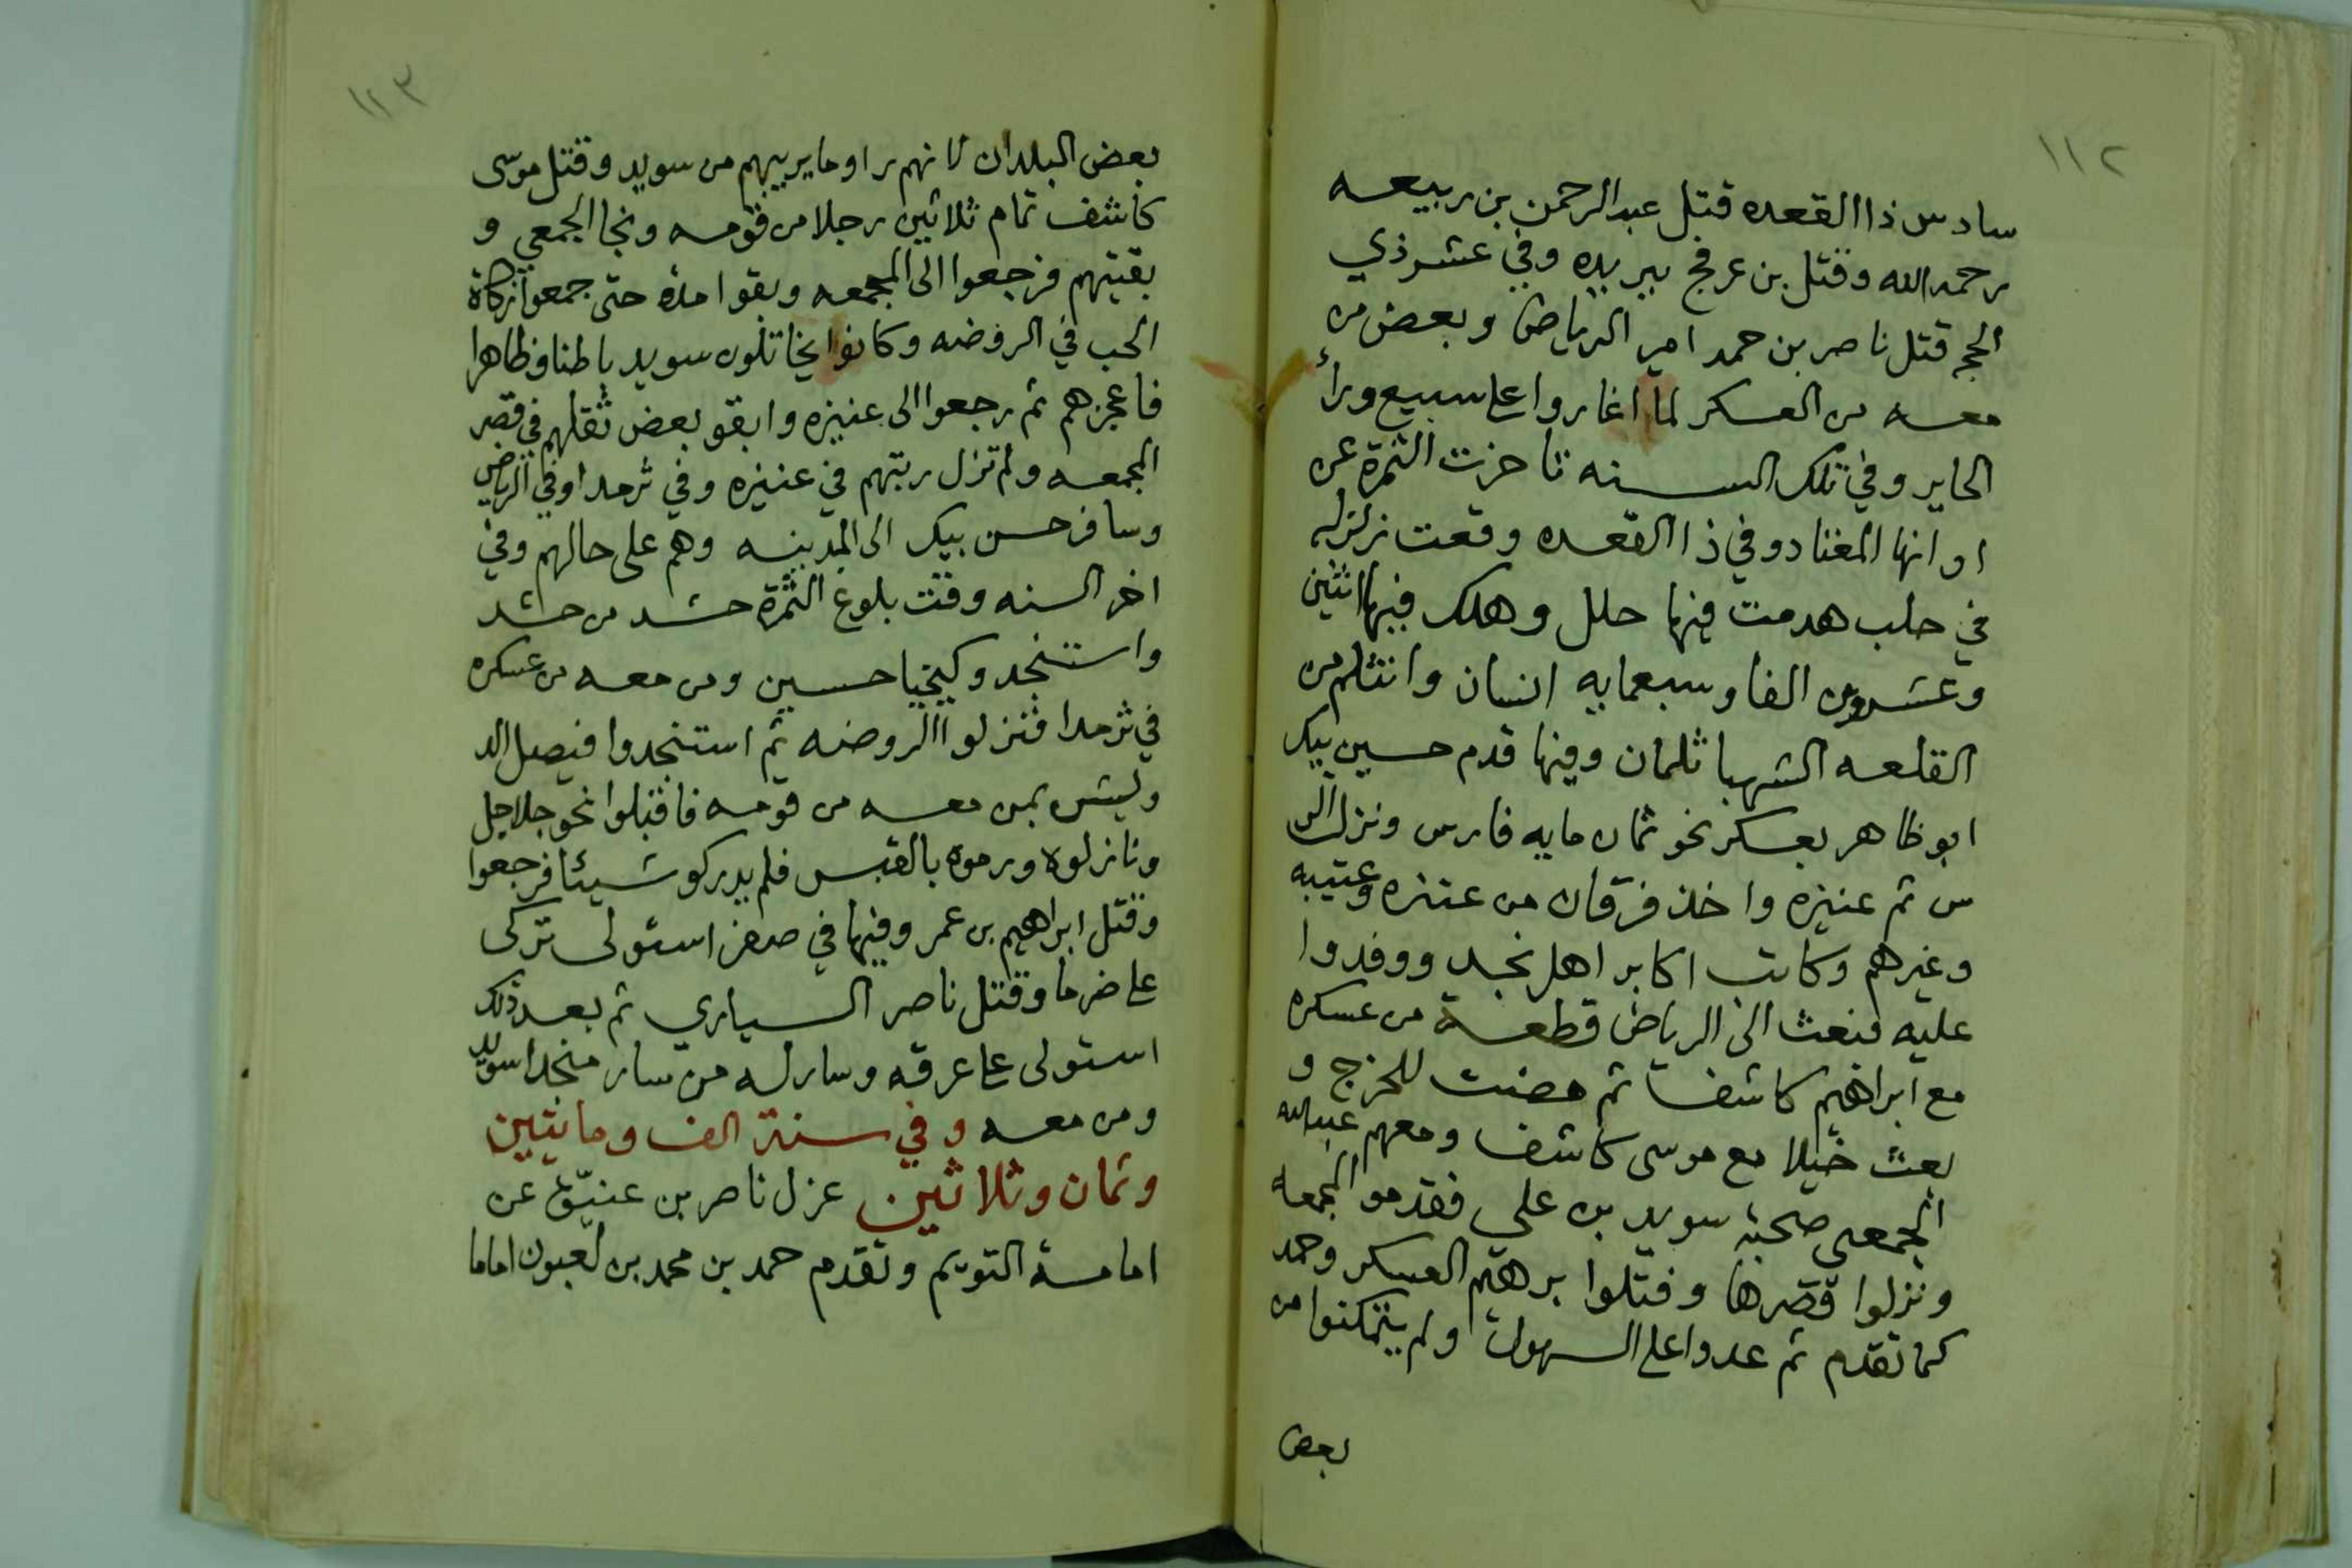 ١١٢
سادس ذا القعده قتل عبد الرحمن بن ربيعه
رحمه الله وقتل بن عرفج ببريده وفي عشر ذي
الحجه قتل ناصر بن حمد امير الرياض وبعض من
معه من العسكر لما اغاروا على سبيع وراء
الحاير وفي تلك السنه تاخزت الثمرة عن
اوانها المغتاد وفي ذا القعده وقعت زلزله
في حلب هدمت فيها حلل وهلك فيها اثنين
وعشرون الفا وسبعمايه انسان وانثلم من
القلعه الشهبا ثلمان وفيها قدم حسين بيك
ابو ظاهر بعسكر نحو ثمان مايه فارس ونزل الر
س ثم عنيزه واخذ فرقان من عنزه وعتيبه
وغيرهم وكاتب اكابر اهل نجد ووفدوا
عليه فبعث الى الرياض قطعة من عسكره
مع ابراهيم كاشف ثم مضت للخرج و
بعث خيلا مع موسى كاشف ومعهم عبد الله
الجمعي صحبة سويد بن علي فقدموا المجمعه
ونزلوا قصرها وقتلوا برهيم العسكر وحمد
كما تقدم ثم عدوا على السهول ولم يتمكنوا من
بعض
١١٣
بعض البلدان لانهم راوا ما يريبهم من سويد وقتل موسى
كاشف تمام ثلاثين رجلا من قومه ونجا الجمعي و
بقيتهم فرجعوا الى المجمعه وبقوا مدة حتى جمعوا زكاة
الحب في الروضه وكانوا يخاتلون سويد باطنا وظاهرا
فاعجزهم ثم رجعوا الى عنيزه وابقو بعض ثقلهم في قصر
المجمعه ولم تزل رتبتهم في عنيزه وفي ثرمدا وفي الرياض
وسافر حسن بيك الى المدينه وهم على حالهم وفي
اخر السنه وقت بلوغ الثمرة حشد من حشد
واستنجد وكيخيا حسين ومن معه من عسكره
في ثرمدا فنزلوا الروضه ثم استنجدوا فيصل الد
ويش بمن معه من قومه فاقبلوا نحو جلاجل
ونازلوه ورموه بالقبس فلم يدركو شيئا فرجعوا
وقتل ابراهيم بن عمر وفيها في صفر استولى تركي
على ضرما وقتل ناصر السياري ثم بعد ذلك
استولى على عرقه وسار له من سار منجدا سويد
ومن معه وفي سنة الف ومايتين
وثمان وثلاثين عزل ناصر بن عنيّق عن
امامة التويم وتقدم حمد بن محمد بن لعبون اماما